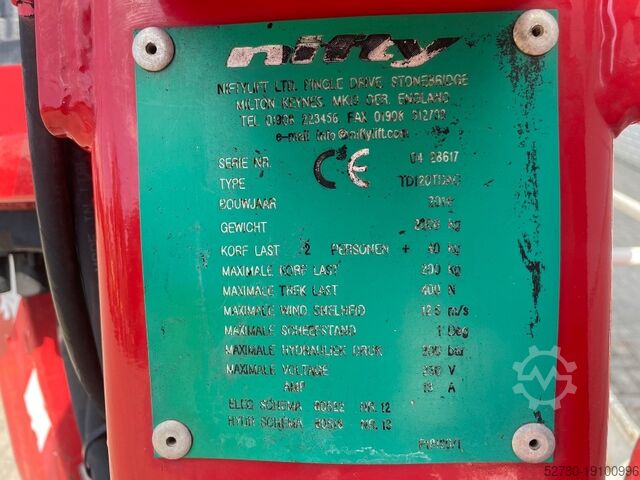 nifty
NIFTYLIFT LTD. FINGLE DRIVE, STONEBRIDGE
MILTON KEYNES, MK13 OER, ENGLAND
TEL 01908 223456 FAX 01908 312733
e-mail: info@niftylift.com
SERIE NR. CE 04 28617
TYPE
BOUWJAAR
GEWICHT kg
KORF LAST 2 PERSONEN + 40 kg
MAXIMALE KORF LAST 200 kg
MAXIMALE TREK LAST 400 N
MAXIMALE WIND SNELHEID 12.5 m/s
MAXIMALE SCHEEFSTAND 1 Deg
MAXIMALE HYDRAULIEK DRUK bar
MAXIMALE VOLTAGE V
AMP A
ELEC SCHEMA NR. 12
HYDR SCHEMA
52730-19100996